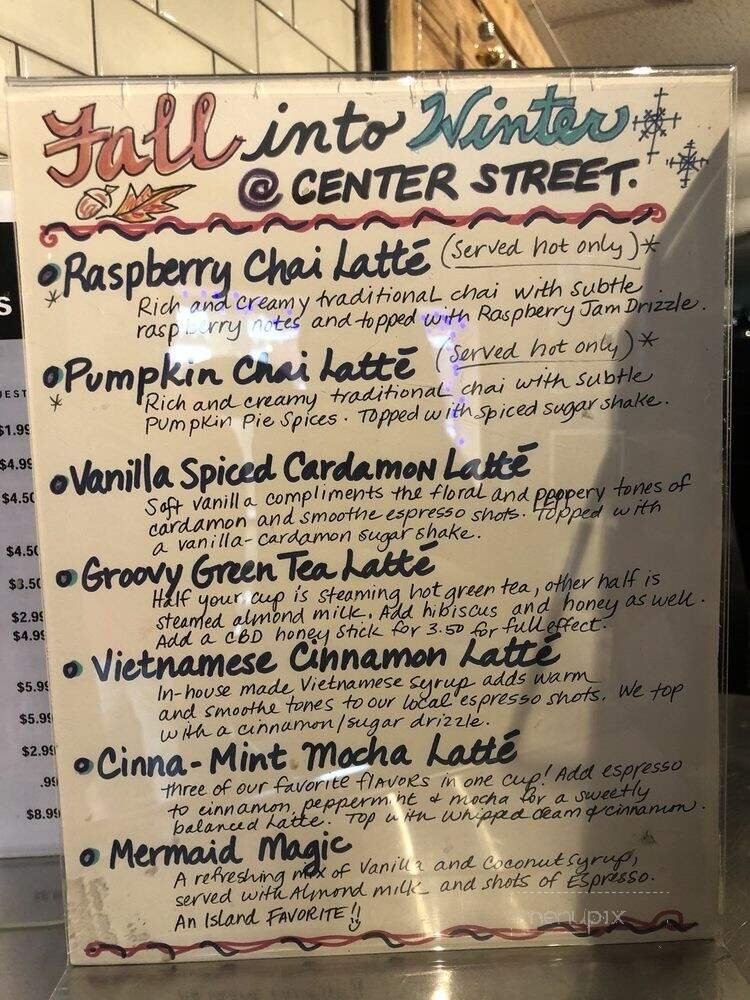 Fall into Winter
@ CENTER STREET.
Raspberry Chai Latté (Served hot only)*
* Rich and creamy traditional chai with subtle
raspberry notes and topped with Raspberry Jam Drizzle.
Pumpkin Chai Latté (Served hot only)*
* Rich and creamy traditional chai with subtle
Pumpkin Pie Spices. Topped with spiced sugar shake.
Vanilla Spiced Cardamon Latté
Soft vanilla compliments the floral and peppery tones of
cardamon and smoothe espresso shots. Topped with
a vanilla-cardamon sugar shake.
Groovy Green Tea Latté
Half your cup is steaming hot green tea, other half is
steamed almond milk. Add hibiscus and honey as well.
Add a CBD honey stick for 3.50 for full effect.
Vietnamese Cinnamon Latté
In-house made Vietnamese syrup adds warm
and smoothe tones to our local espresso shots. We top
with a cinnamon/sugar drizzle.
Cinna-Mint Mocha Latté
three of our favorite flavors in one cup! Add espresso
to cinnamon, peppermint & mocha for a sweetly
balanced latte. Top with whipped cream & cinnamon.
Mermaid Magic
A refreshing mix of Vanilla and Coconut syrup,
served with Almond milk and shots of Espresso.
An Island FAVORITE!!
menupix
S
EST
$1.99
$4.99
$4.50
$4.50
$3.50
$2.99
$4.99
$5.99
$5.99
$2.99
.99
$8.99